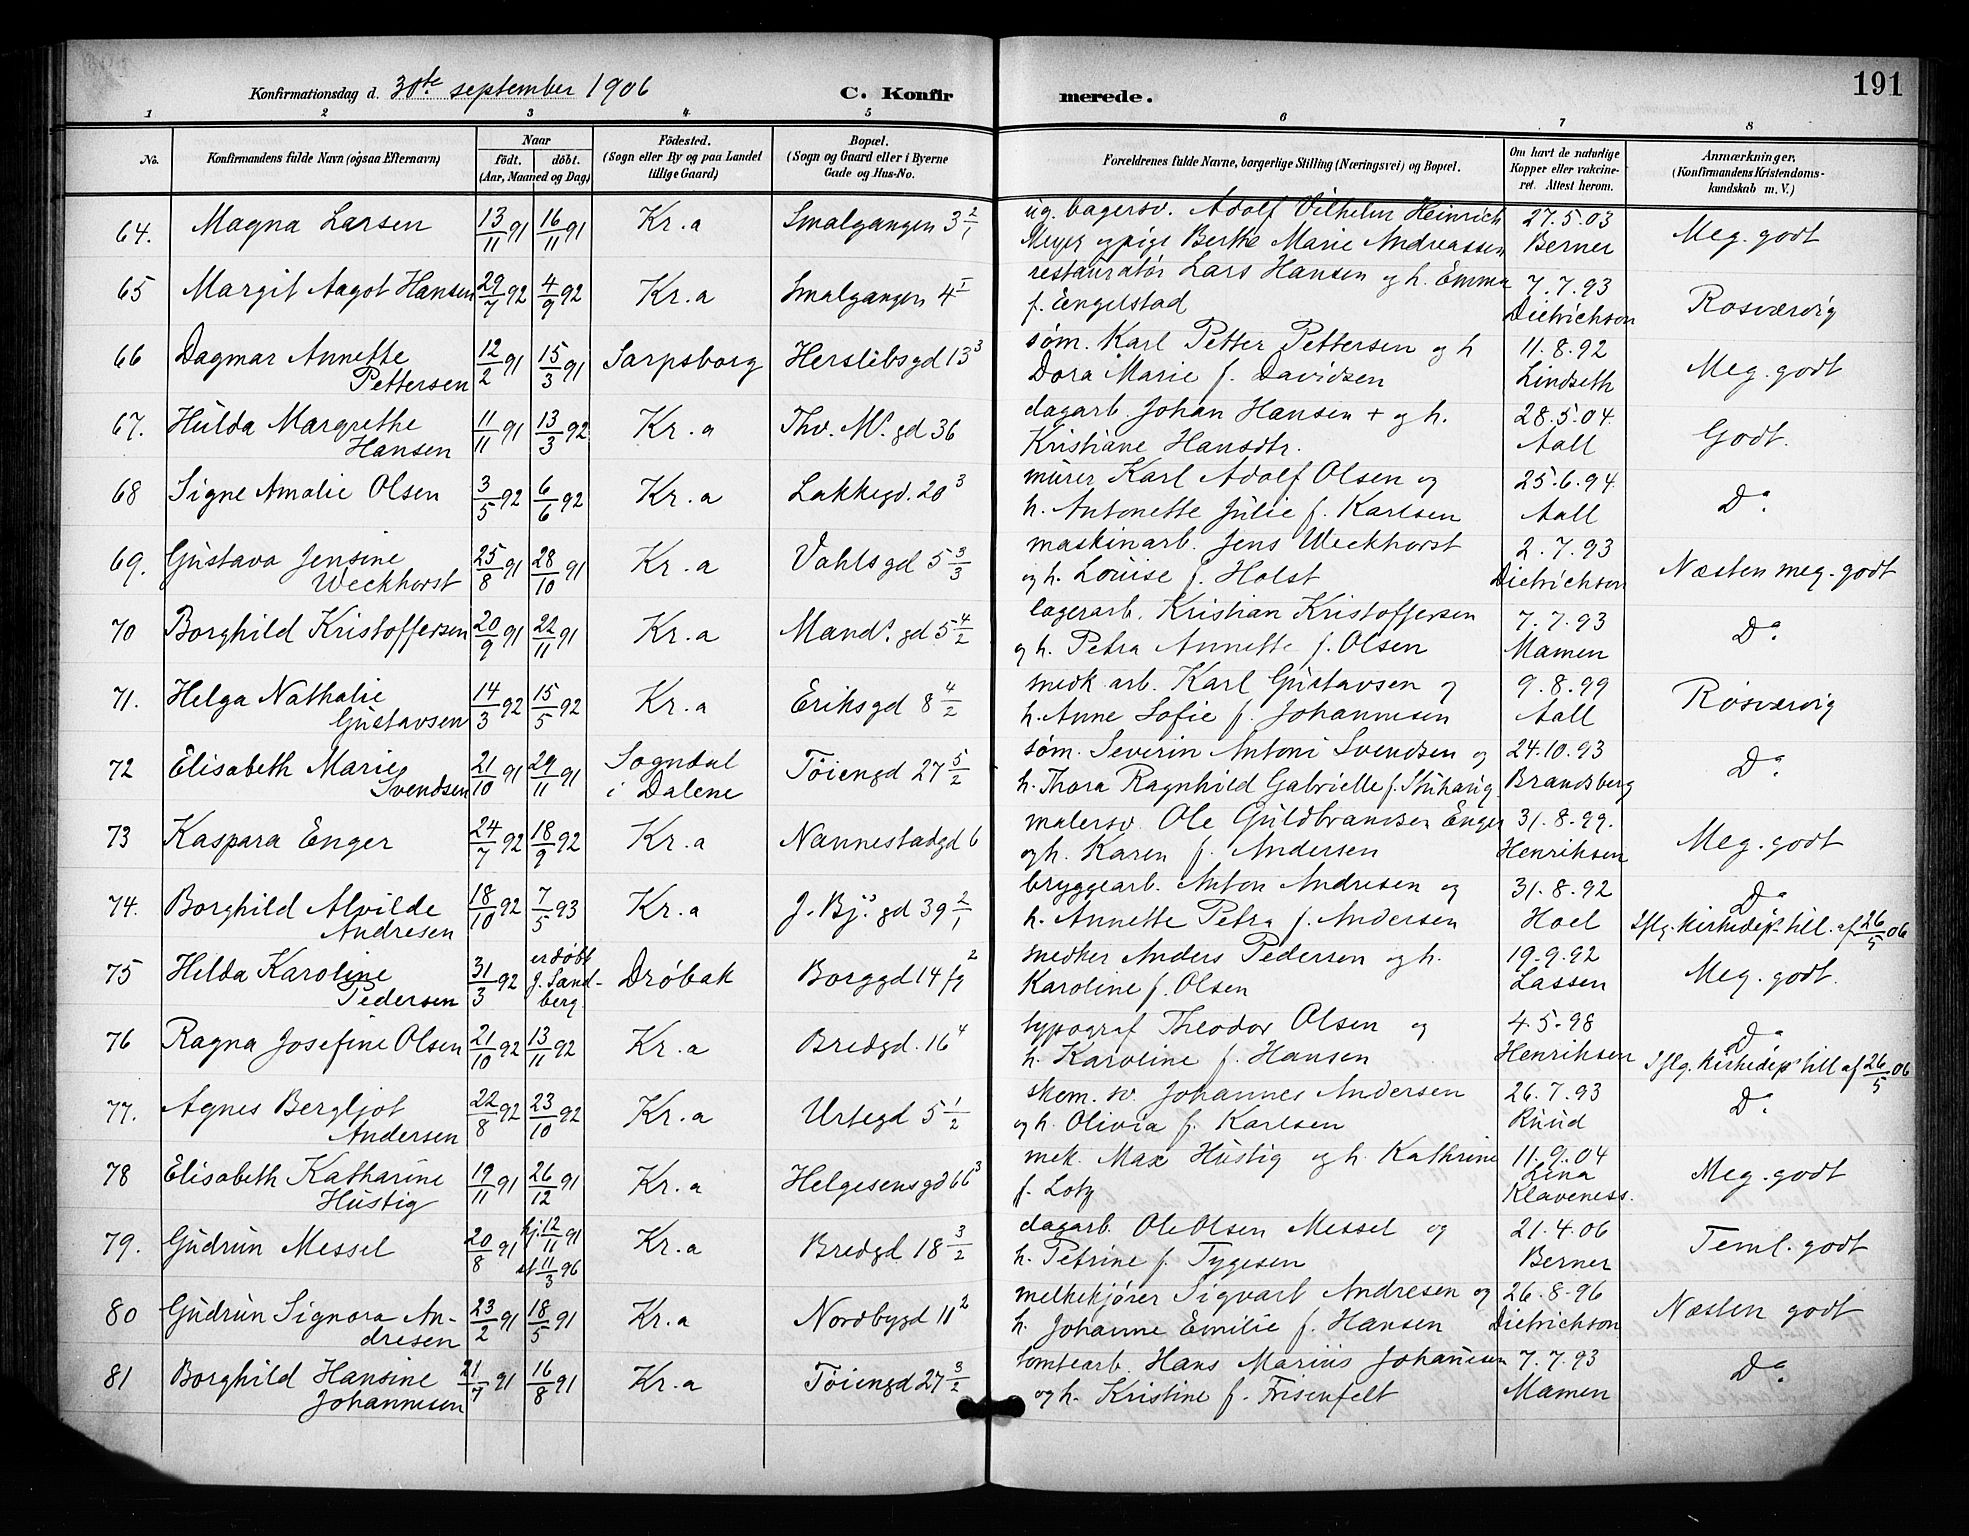 191
Konfirmationsdag d. 30te september 1906 C. Konfirmerede.
1 2 3 4 5 6 7 8
No. Konfirmandens fulde Navn (ogsaa Efternavn) Naar født. døbt. (Aar, Maaned og Dag) Fødested. (Sogn eller By og paa Landet tillige Gaard) Bopæl. (Sogn og Gaard eller i Byerne Gade og Hus-No. Forældrenes fulde Navne, borgerlige Stilling (Næringsvei) og Bopæl. Om havt de naturlige Kopper eller vakcineret. Attest herom. Anmærkninger. (Konfirmandens Kristendomskundskab m. V.)
64. Magna Larsen 13/11 91 16/11 91 Kr.a Smalgangen 3 2/1 ug. bagersv. Adolf Vilhelm Heinrich 27.5.03 Meg. godt
Meyer og pige Berthe Marie Andreassen Berner
65 Margit Aagot Hansen 29/7 92 4/9 92 Kr.a Smalgangen 4 I restauratør Lars Hansen og h. Emma 7.7.93 Rosværdig
f. Engelstad Dietrichson
66 Dagmar Annette 12/2 91 15/3 91 Sarpsborg Herslebsgd 13 3 søm. Karl Petter Pettersen og h 11.8.92 Meg. godt
Pettersen Dora Marie f. Davidsen Lindseth
67. Hulda Margrethe 11/11 91 13/3 92 Kr.a Thv. M's gd 36 dagarb. Johan Hansen + og h. 28.5.04 Godt.
Hansen Kristiane Hansdtr. Aall
68 Signe Amalie Olsen 3/5 92 6/6 92 Kr.a Lakkegd. 20 3 murer Karl Adolf Olsen og 25.6.94 Do
h. Antonette Julie f. Karlsen Aall
69. Gustava Jensine 25/8 91 28/10 91 Kr.a Vahlsgd 5 3/3 maskinarb. Jens Weckhorst 2.7.93 Næsten meg. godt
Weckhorst og h. Louise f. Holst Dietrichson
70 Borghild Kristoffersen 20/9 91 22/11 91 Kr.a Mands. gd 5 4/2 lagerarb. Kristian Kristoffersen 7.7.93 Do
og h. Petra Annette f. Olsen Mamen
71. Helga Nathalie 14/3 92 15/5 92 Kr.a Eriksgd 8 4/2 smedk. arb. Karl Gustavsen og 9.8.99 Rosværdig
Gustavsen h. Anne Sofie f. Johannesen Aall
72 Elisabeth Marie 21/10 91 29/11 91 Sogndal Tøiengd 27 5/2 søm. Severin Antoni Svendsen og 24.10.93 Do
Svendsen i Dalene h. Thora Ragnhild Gabrielle f. Stuhaug Brandsberg
73 Kaspara Enger 24/7 92 18/9 92 Kr.a Nannestadgd 6 malersv. Ole Guldbrandsen Enger 31.8.99. Meg. godt
og h. Karen f. Andersen Henriksen
74. Borghild Alvilde 18/10 92 7/5 93 Kr.a J. Bj's gd 39 2/1 bryggearb. Anton Andresen og 31.8.92 Do
Andresen h. Annette Petra f. Andersen Hoel Iflg. kirkedep's till. af 26/5 06
75 Helda Karoline 31/3 92 er døbt f. Sandberg Drøbak Borggd 14 2 medker Anders Pedersen og h. 19.9.92 Meg. godt.
Pedersen Karoline f. Olsen Lassen
76 Ragna Josefine Olsen 21/10 92 13/11 92 Kr.a Bredgd. 16 4 typograf Theodor Olsen og 4.5.98 Do
h. Karoline f. Hansen Henriksen Iflg. kirkedep's till af 26/5 06
77. Agnes Bergljot 22/8 92 23/10 92 Kr.a Urtegd 5 1/2 skom. sv. Johannes Andersen 26.7.93 Do
Andersen og h. Olivia f. Karlsen Ruud
78 Elisabeth Katharine 19/11 91 26/12 91 Kr.a Helgesensgd 66 3 mek. Max Hustig og h. Kathrine 11.9.04 Meg. godt
Hustig f. Lotz Lina Klaveness.
79. Gudrun Messel 20/8 91 hj. 12/11 91 st 11/3 96 Kr.a Bredgd 18 3/2 dagarb. Ole Olsen Messel og 21.4.06 Teml. godt
h. Petrine f. Tygesen Berner
80 Gudrun Signora An- 23/2 91 18/5 91 Kr.a Nordbygd 11 2 melkekjører Sigvart Andresen og 26.8.96 Næsten godt
dresen h. Johanne Emilie f. Hansen Dietrichson
81 Borghild Hansine 21/7 91 16/8 91 Kr.a Tøiengd 27 3/2 tomtearb. Hans Marius Johannesen 7.7.93 Do
Johannesen og h. Kristine f. Frisenfelt Mamen